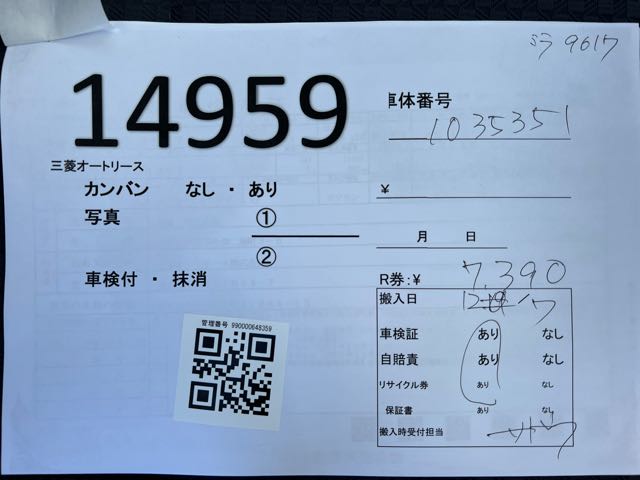 ミラ 9617
14959
車体番号
1035351
三菱オートリース
カンバン なし ・ あり
¥
写真 ①
②
月 日
車検付 ・ 抹消
R券:¥ 7,390
搬入日 12 /7
管理番号 990000648359
車検証 あり なし
自賠責 あり なし
リサイクル券 あり なし
保証書 あり なし
搬入時受付担当